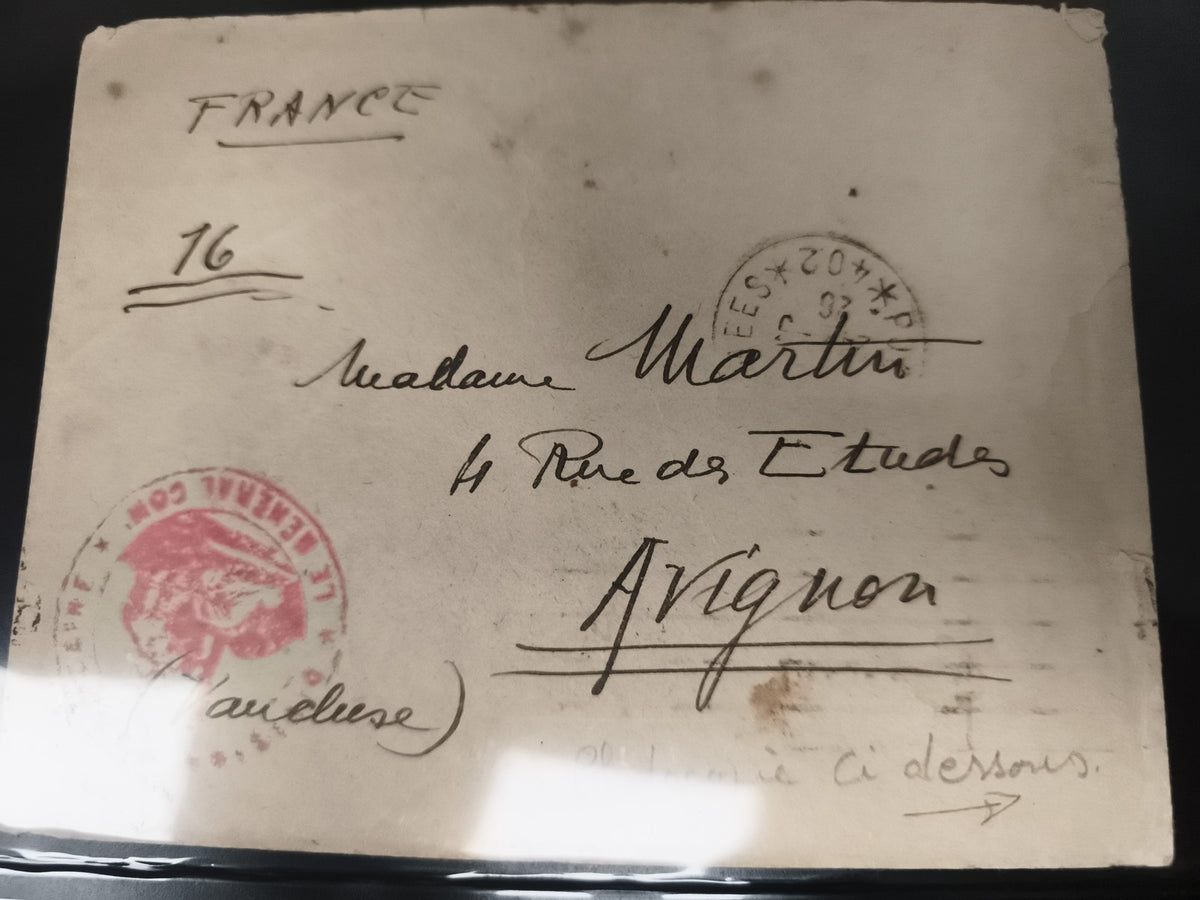 FRANCE
16
EES * 402 * P.
Madame Martin
4 Rue des Etudes
LE GENERAL COM
Avignon
(Vaucluse)
ci dessous.